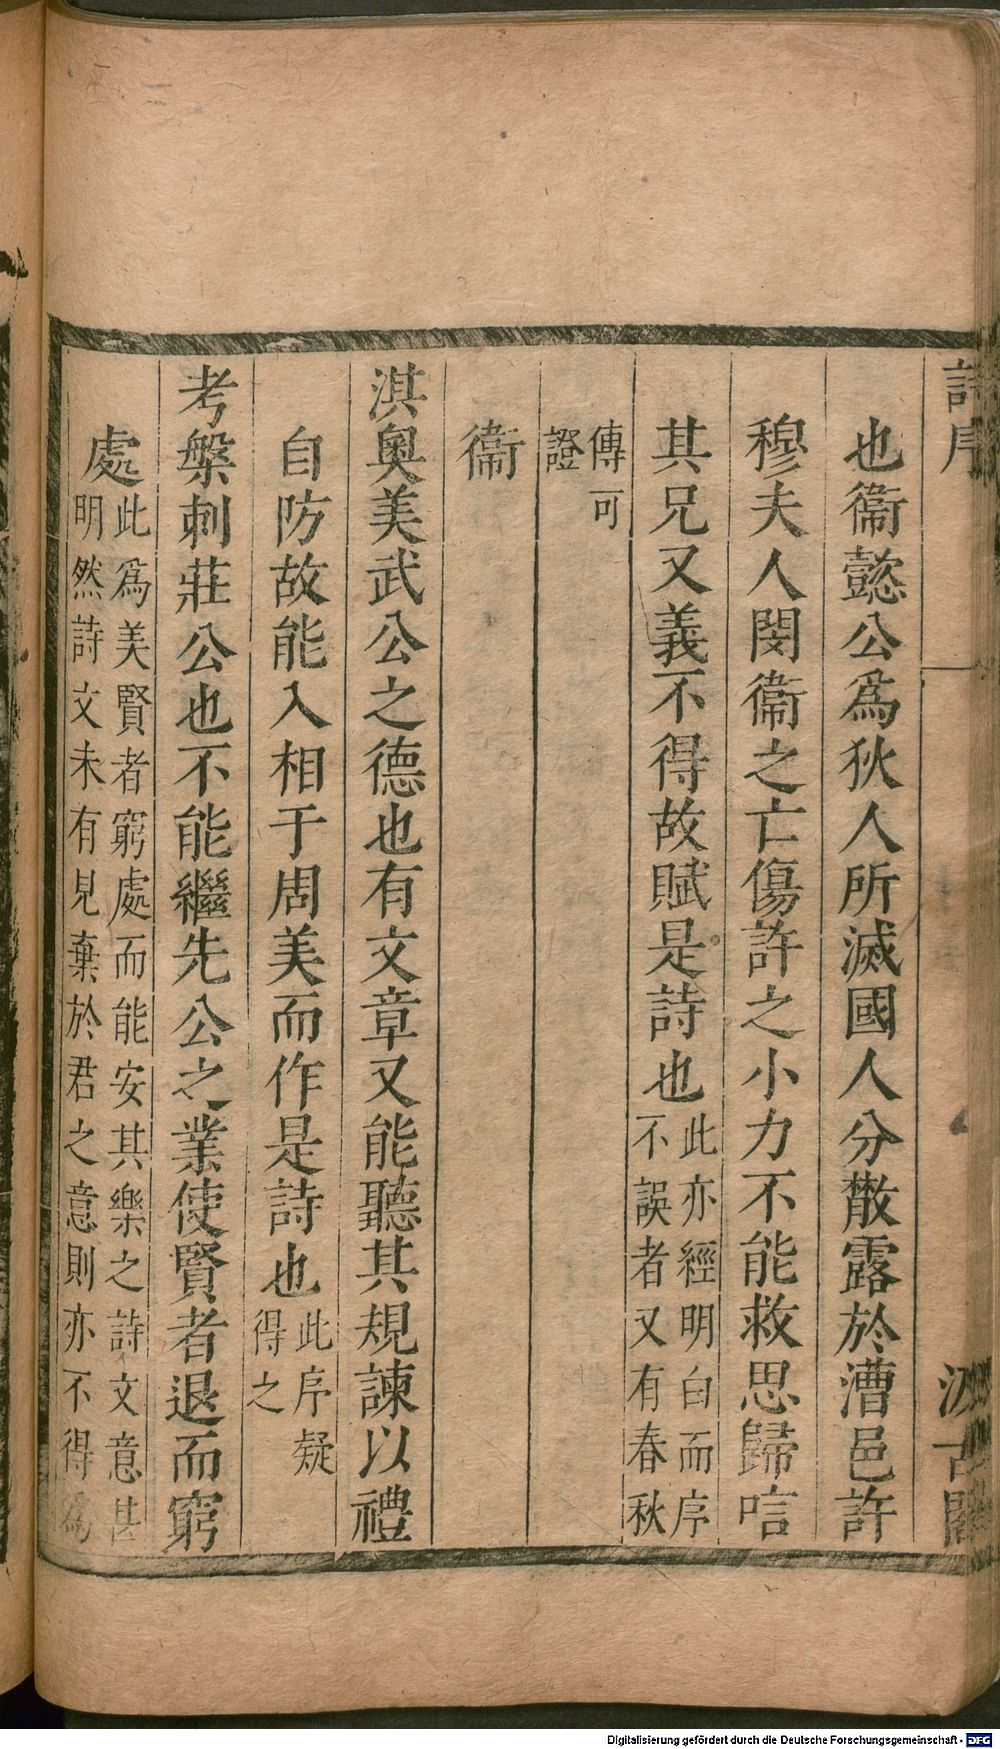 詩序
汲古閣
也衞懿公爲狄人所滅國人分散露於漕邑許
穆夫人閔衞之亡傷許之小力不能救思歸唁
其兄又義不得故賦是詩也此亦經明白而序
不誤者又有春秋
傳可
證
衞
淇奧美武公之德也有文章又能聽其規諫以禮
自防故能入相于周美而作是詩也此序疑
得之
考槃刺莊公也不能繼先公之業使賢者退而窮
處此爲美賢者窮處而能安其樂之詩文意甚
明然詩文未有見棄於君之意則亦不得爲
Digitalisierung gefördert durch die Deutsche Forschungsgemeinschaft - DFG